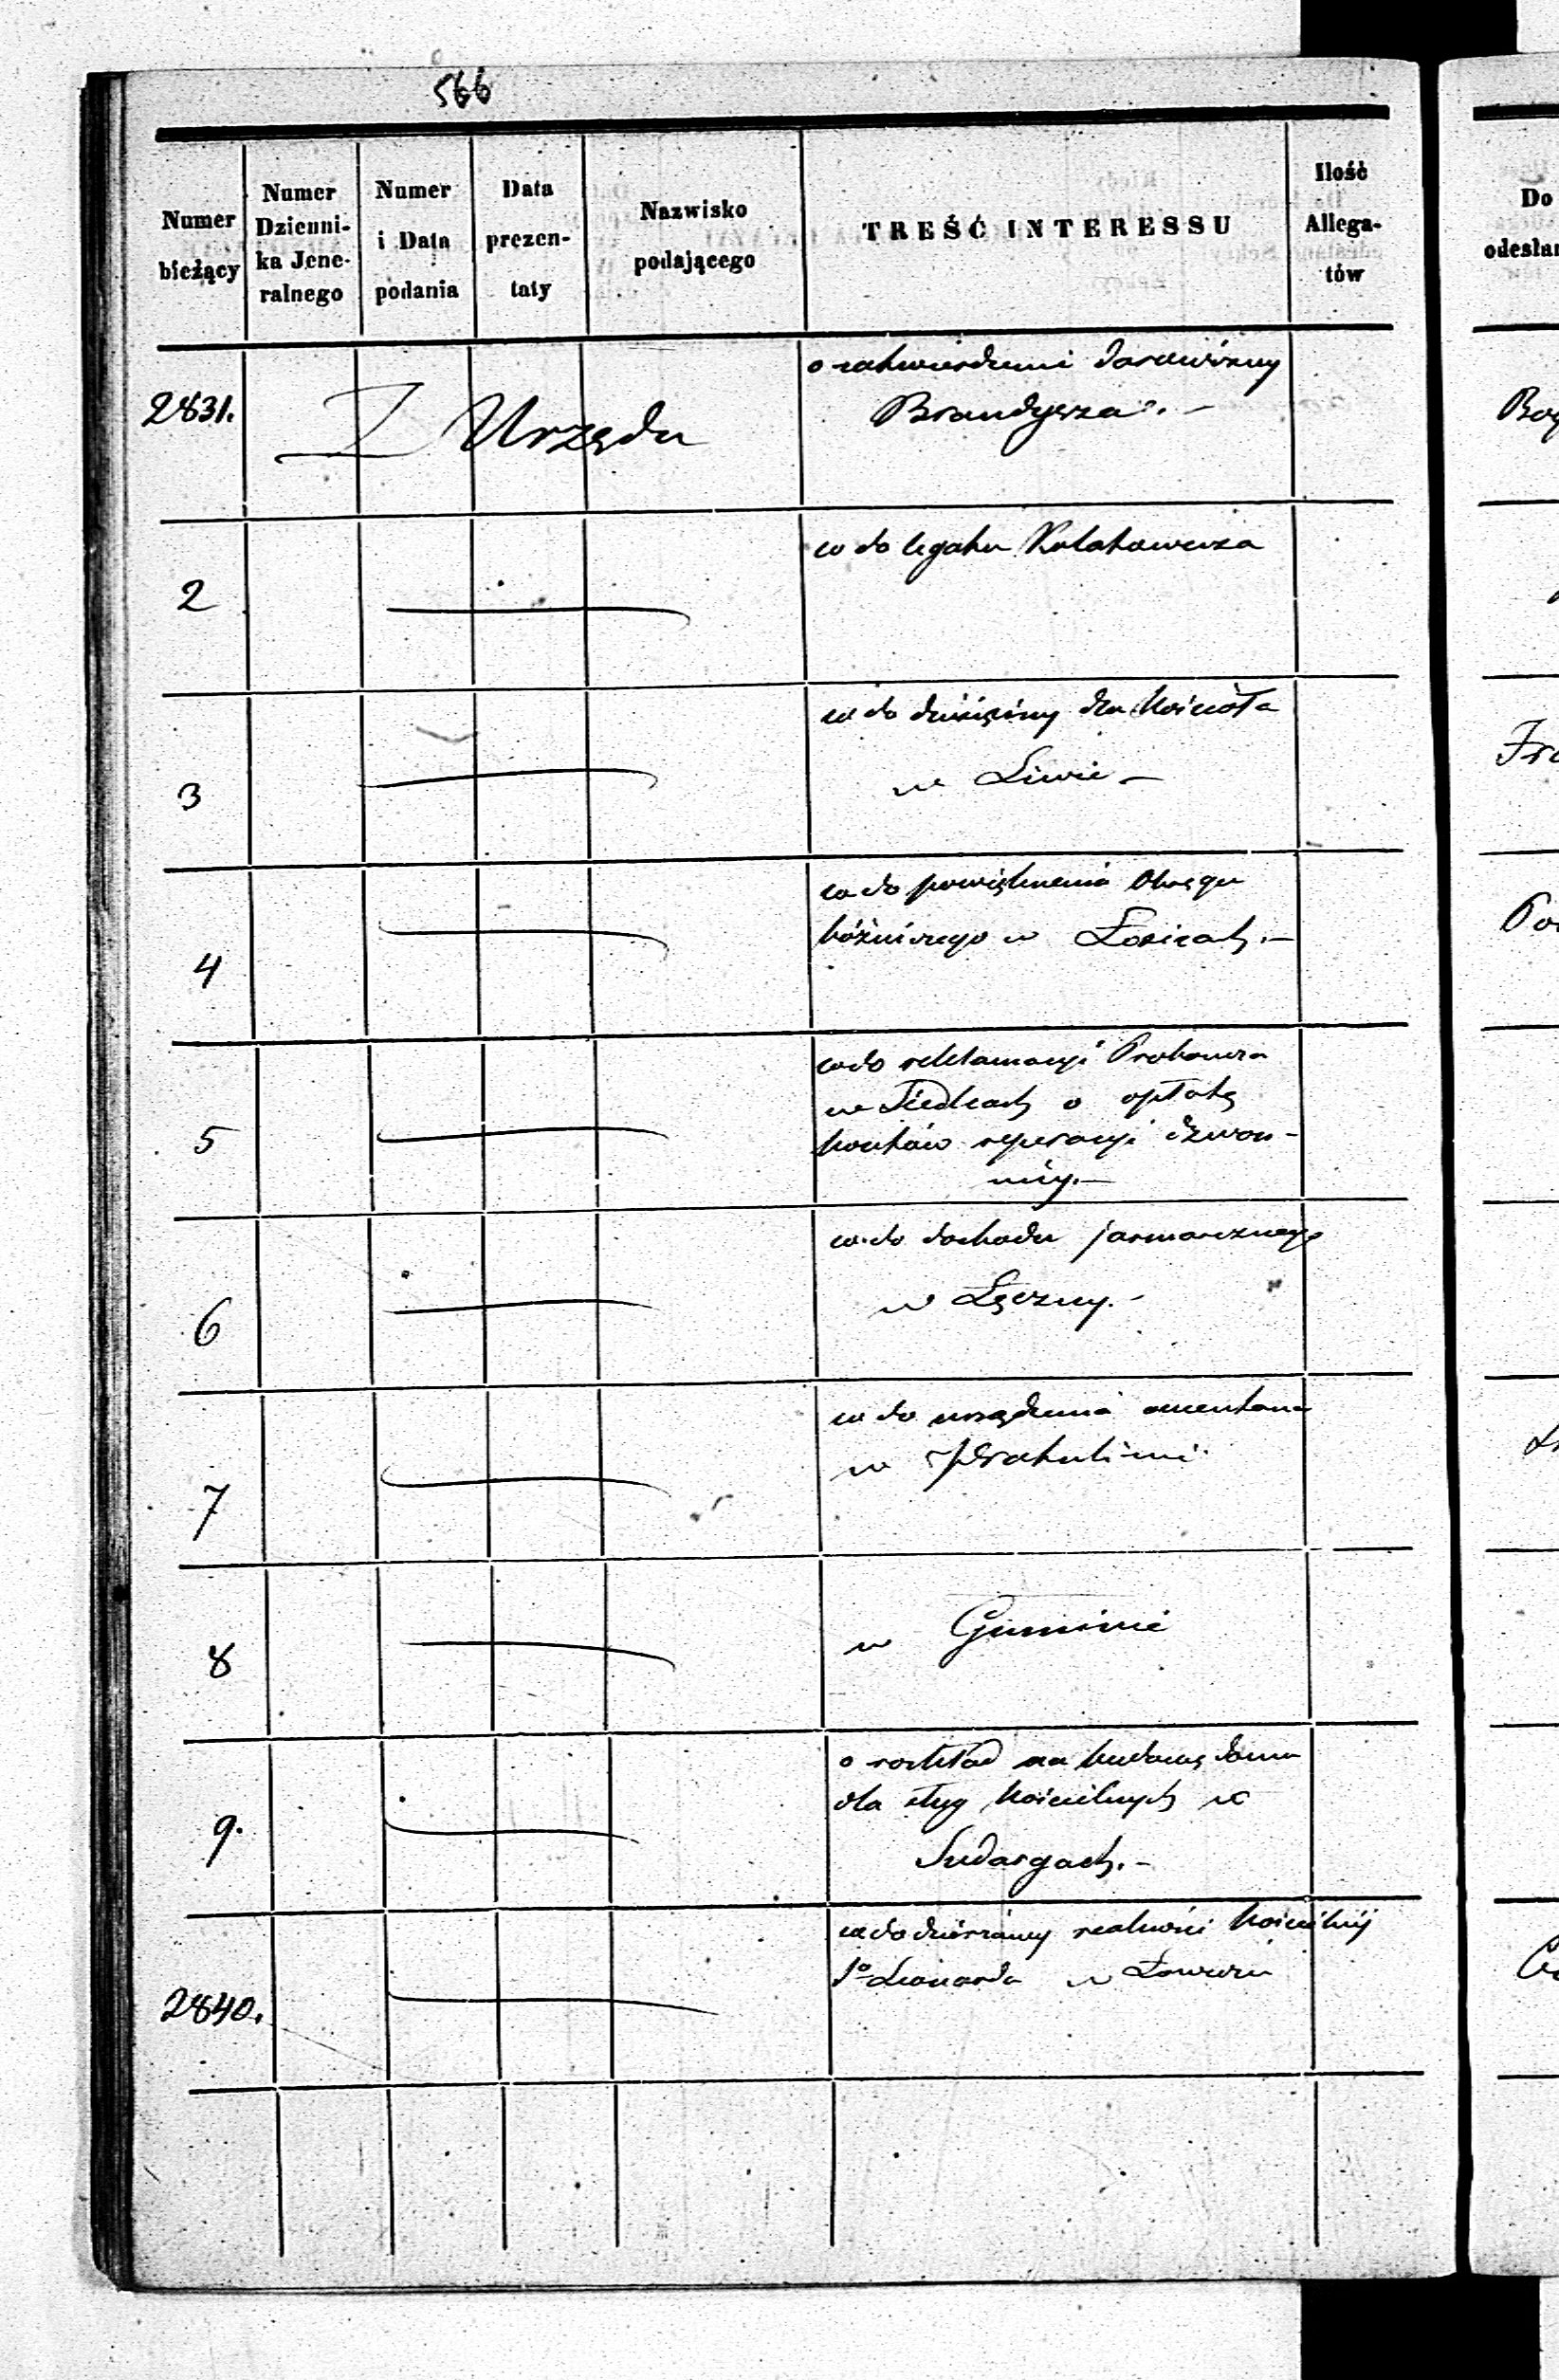 566
Numer bieżący
Numer Dzienni-ka Jene-ralnego
Numer i Data podania
Data prezen-taty
Nazwisko podającego
TREŚĆ INTERESSU
Ilość Allega-tów
Do
odesłan
2831.
Z Urzędu
o zatwierdzenie darowizny
Brandysza. -
Bog
2
co do legatu
3
co do dziesięciny dla kościoła
w Liwie -
4
co do powiększenia okręgu
bóżniczego w Łosicach. -
5
co do reklamacyi Proboszcza
w Siedlcach o opłatę
kosztów reperacyi dzwon-
nicy. -
6
co do dochodu jarmarcznego
w Łęczny. -
7
co do urządzenia cmentarza
w Pratulinie
8
w Guminie
9.
o rozkład na budowę domu
dla sług kościelnych w
Sudargach. -
2840.
co do dzierżawy realności kościelnej
So Leonarda w Łowiczu